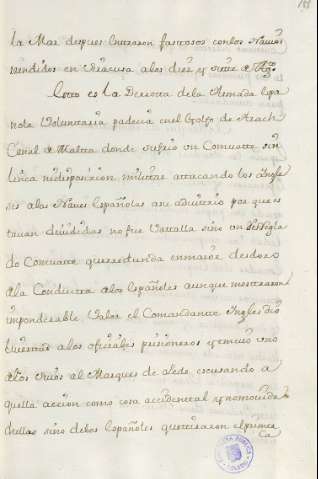 la Mar despues entraron fastosos con los Navios
rendidos en Siracusa a los diez y siete de Agto
Esta es la Derrota de la Armada Espa
ñola Voluntaria padecia en el Golfo de
Canal de Maltta donde sufrio un Comvatte sin
linea ni disposicion militar attacando los Ingle
ses a las Naves Españolas a su advitrio por que es
tavan divididas no fue Vattalla sino un
do Comvatte que redunda en maior desdoro
a la Conductta a los Españoles aunque mostraron
imponderable Valor el Comandante Ingles dio
livertad a los oficiales prisioneros y emvio uno
de los suios al Marques de Lede, escusando a
quella accion como cosa accidental y no movida
de ellos sino de los Españoles que tiraron el prime
ra